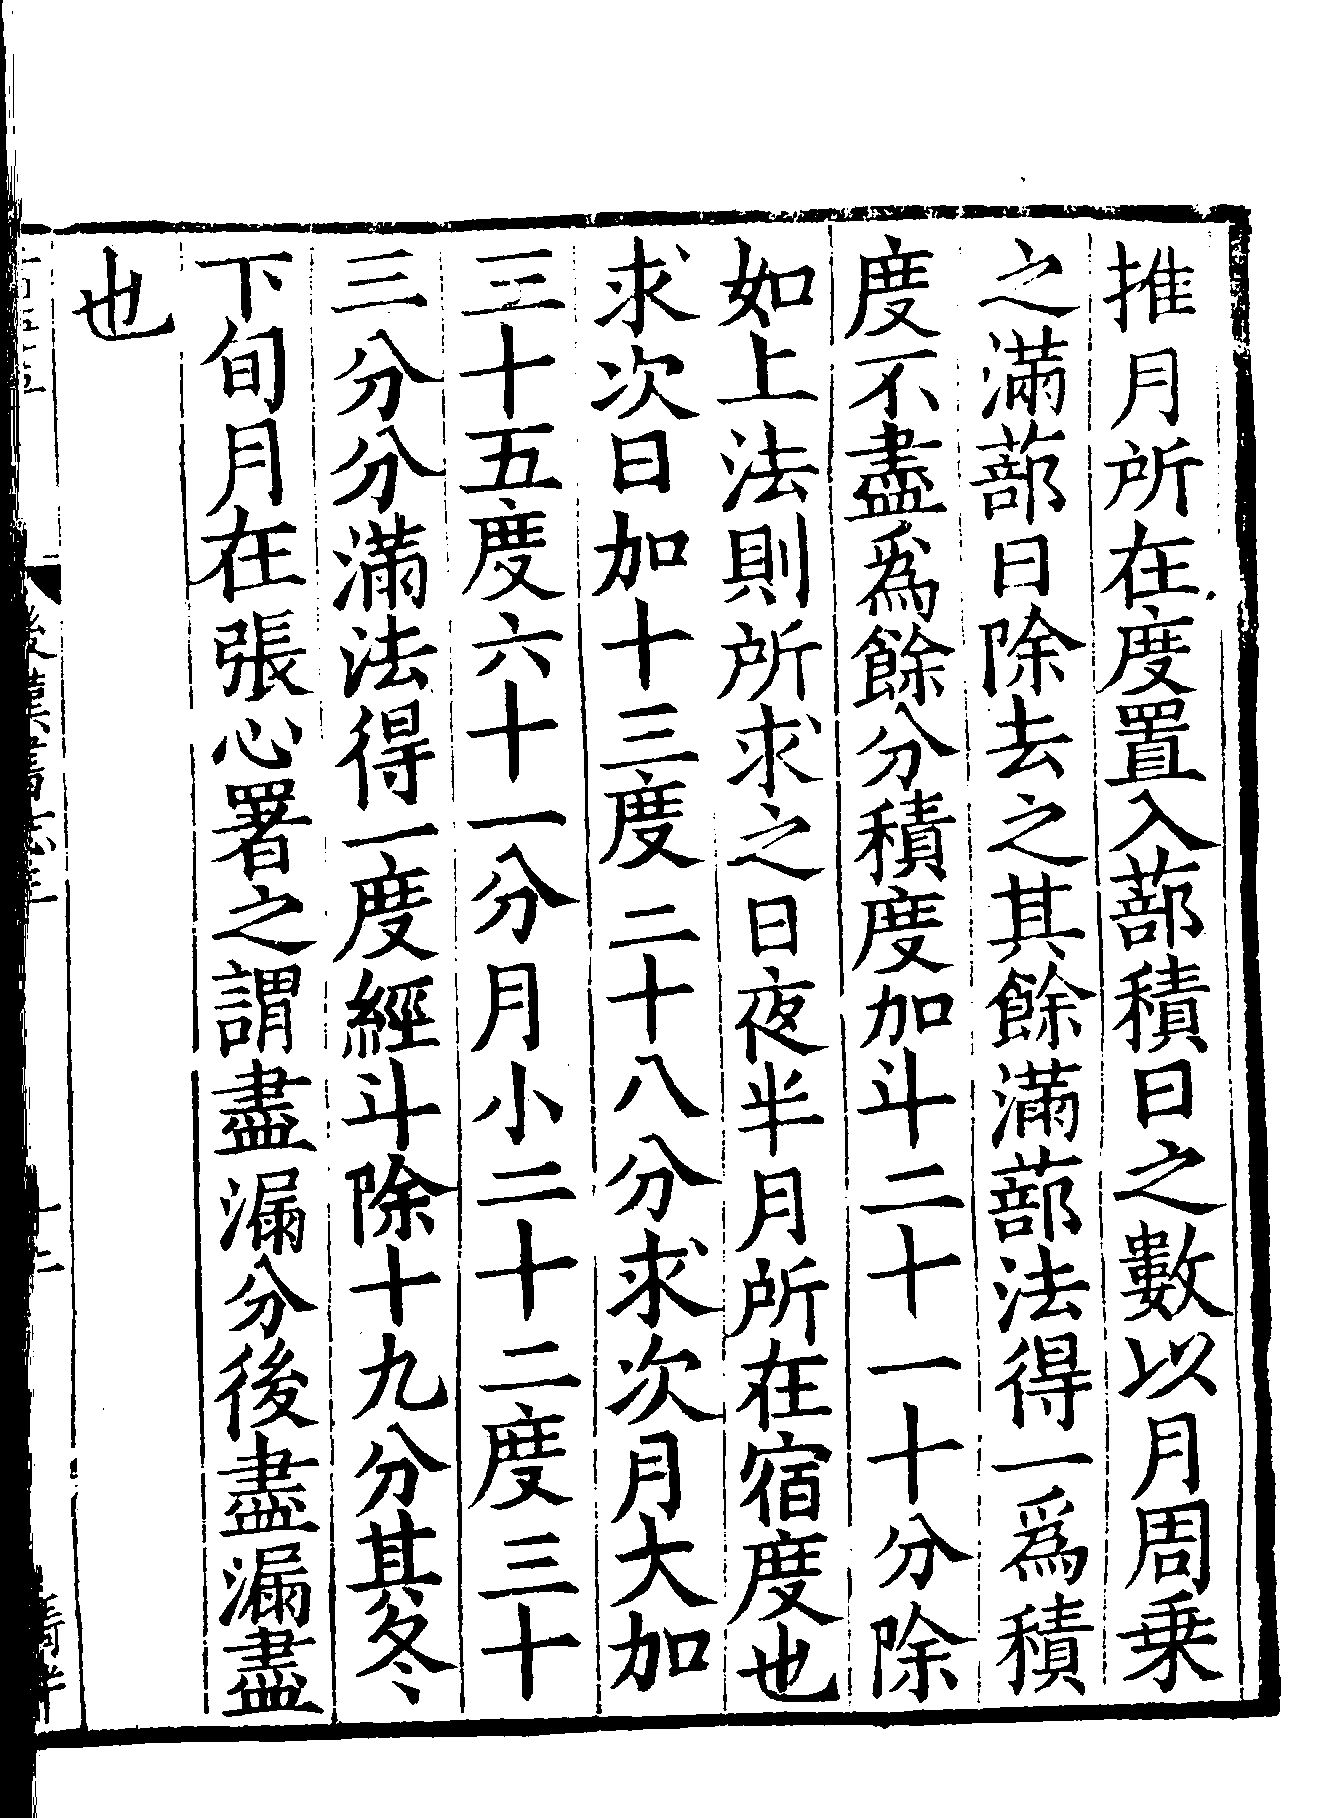 推月所在度置入蔀積日之數以月周乗
之滿蔀日除去之其餘滿蔀法得一爲積
度不盡爲餘分積度加斗二十一十分除
如上法則所求之日夜半月所在宿度也
求次日加十三度二十八分求次月大加
三十五度六十一分月小二十二度三十
三分分滿法得一度經斗除十九分其冬
下旬月在張心署之謂盡漏分後盡漏盡
也